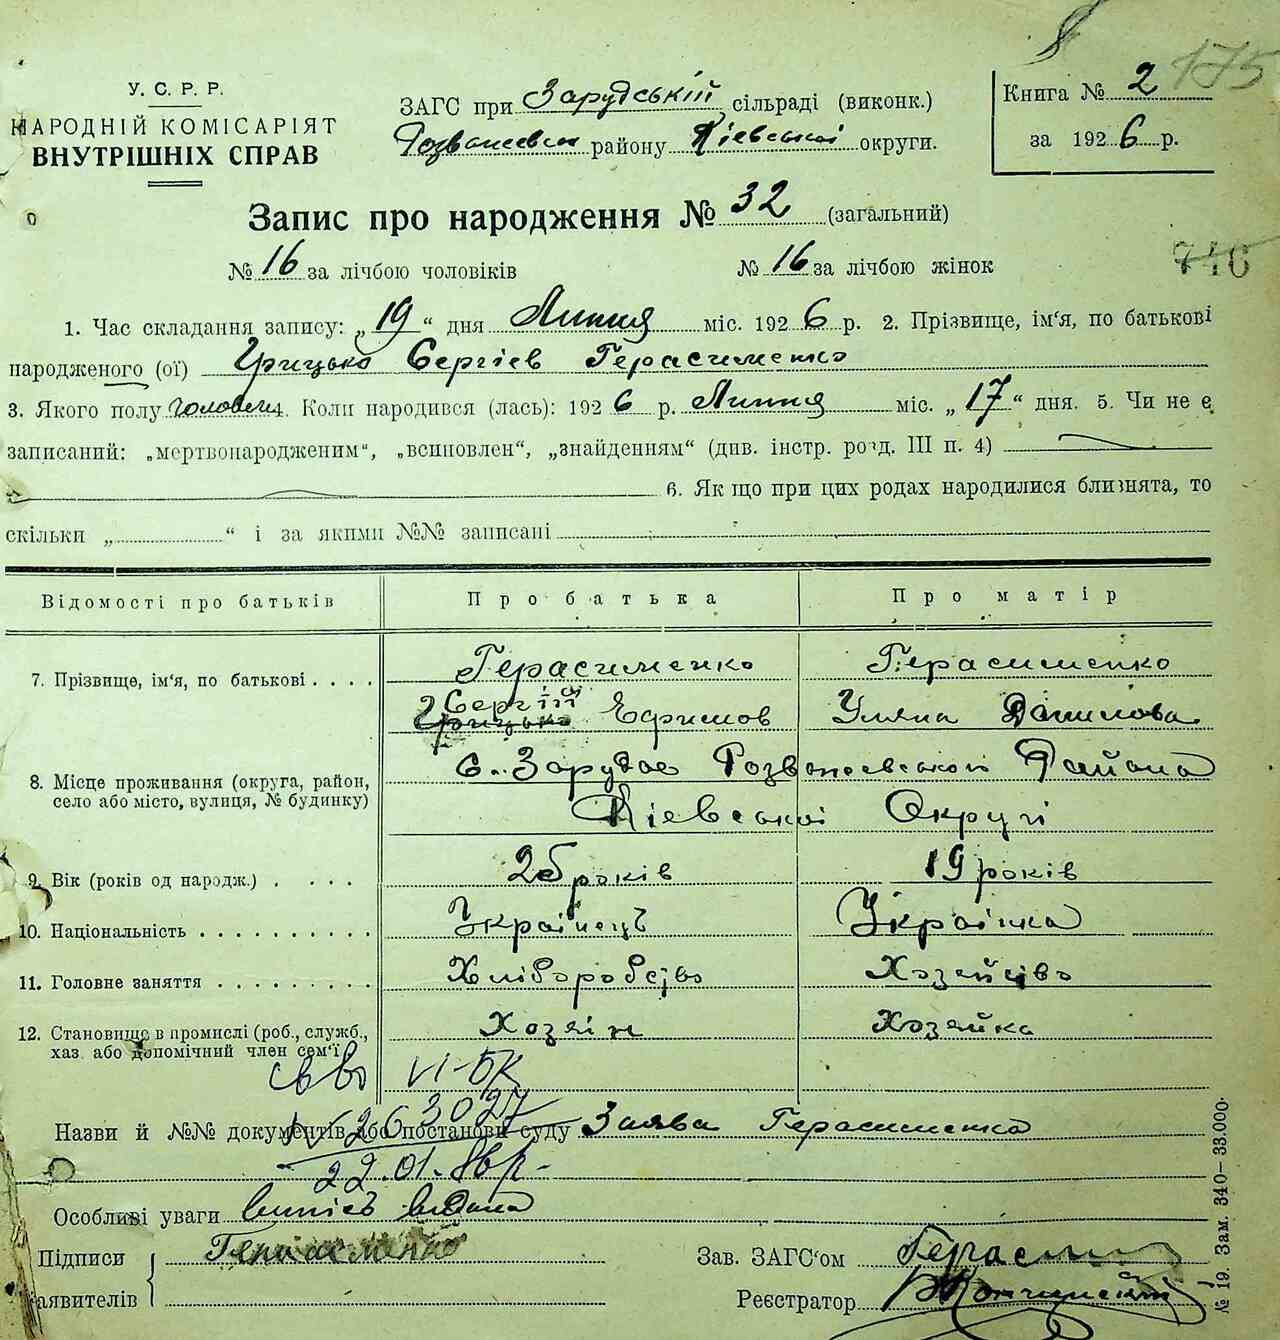 175
У. С. Р. Р.
НАРОДНІЙ КОМІСАРІЯТ
ВНУТРІШНІХ СПРАВ
ЗАГС при Зарудській сільраді (виконк.)
району Кіевської округи.
Книга № 2
за 1926 р.
Запис про народження № 32 (загальний)
№ 16 за лічбою чоловіків № 16 за лічбою жінок
746
1. Час складання запису: „19“ дня Липня міс. 1926 р. 2. Прізвище, ім‘я, по батькові
народженого (ої) Грицько Сергіев Герасименко
3. Якого полу Коли народився (лась): 1926 р. Липня міс. „17“ дня. 5. Чи не є
записаний: „мертвонародженим“, „всиновлен“, „знайденням“ (див. інстр. розд. III п. 4)
6. Як що при цих родах народилися близнята, то
скільки „ “ і за якими №№ записані
Відомості про батьків Про батька Про матір
7. Прізвище, ім‘я, по батькові Герасименко Герасименко
Сергій
Грицько Ефимов Уляна Данилова
8. Місце проживання (округа, район, село або місто, вулиця, № будинку) с. Зарудае Розважевського Района
Кіевської Округи
9. Вік (років од народж.) 25 років 19 років
10. Національність Українець Українка
11. Головне заняття Хліборобство Хозяйство
12. Становище в промислі (роб., служб., Хозяін Хозяйка
хаз. або допомічний член сем‘ї
VI-БК
№ 263027
Назви й №№ документів або постанови суду Заява Герасименка
22.01.
Особливі уваги видана
Підписи Герасменко Зав. ЗАГС‘ом
заявителів Реєстратор
№ 19. Зам. 340—33.000.